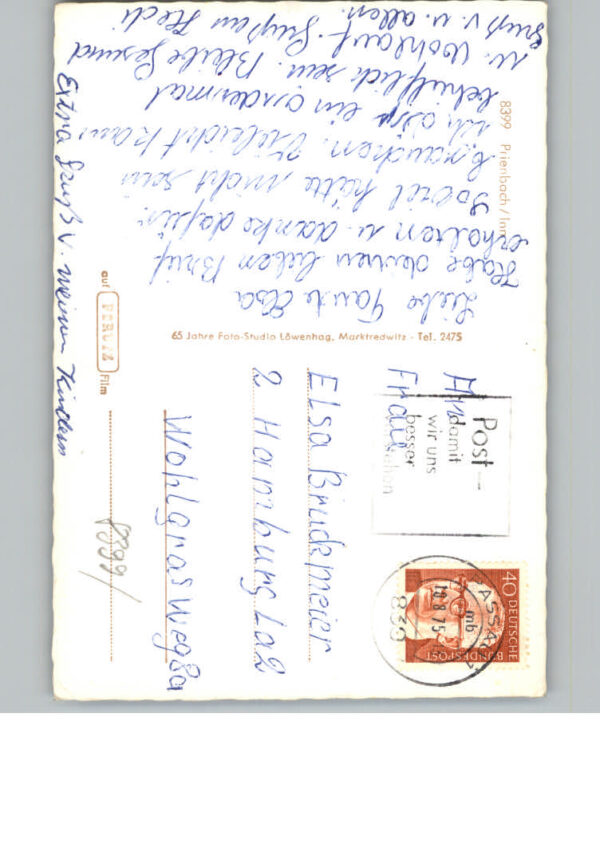 8399 Prienbach / Inn
Liebe Tante Elsa
Habe deinen lieben Brief
erhalten u. danke dafür.
Soviel hätte nicht sein
brauchen. Vieleicht kann
ich dir ein andermal
behilflich sein. Bleibe Gesund
u. Wohlauf. Gruß an Hedi
Gruß v. u. allen.
Extra Gruß v. meinen Kindern
65 Jahre Foto-Studio Löwenhag, Marktredwitz - Tel. 2475
auf PERUTZ Film
Post—
damit
wir uns
besser
An
Frau
Elsa Bruckmeier
2 Hamburg La 2
Wohlgrosweg 8a
8399/
PASSAU
mb
19.8.75
839
40
DEUTSCHE
BUNDESPOST